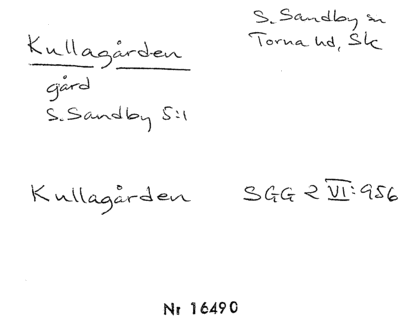 Kullagården
S. Sandby sn
Torna hd, Sk
gård
S. Sandby 5:1
Kullagården SGG 2 VI:956
Nr 16490